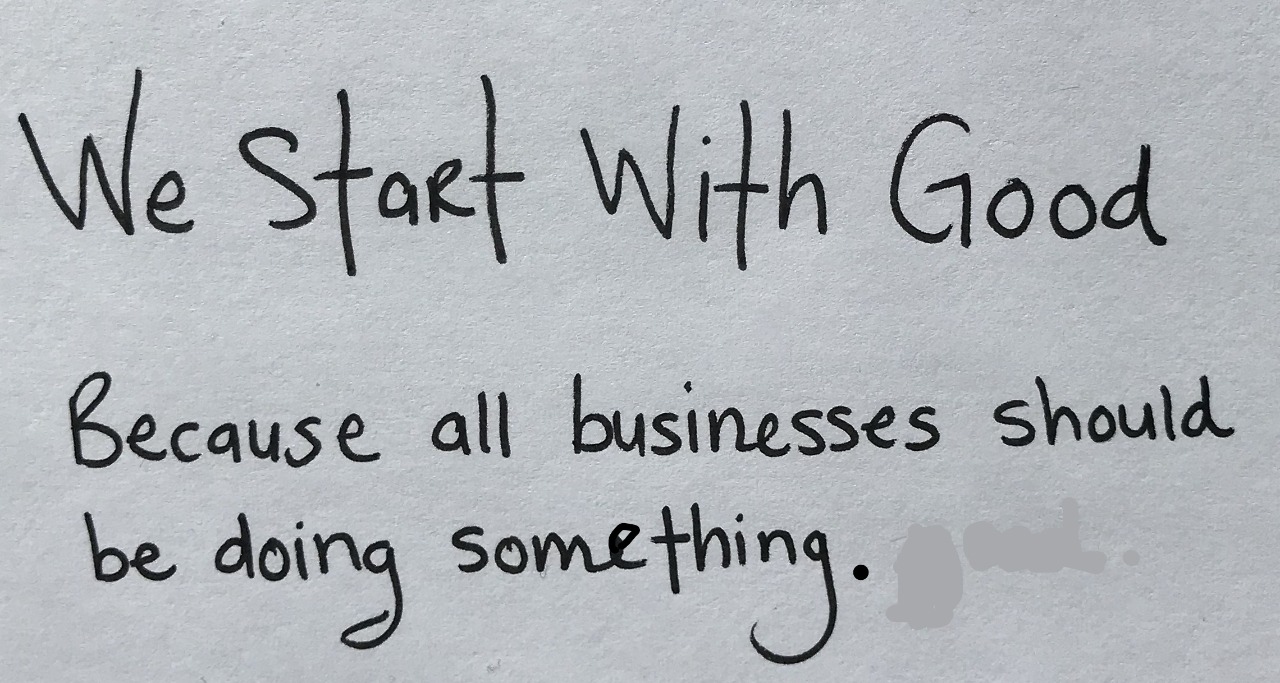 We Start With Good
Because all businesses should
be doing something.